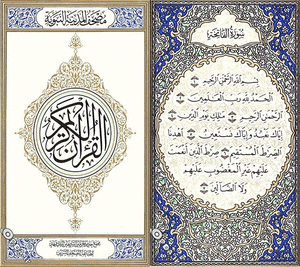 مصحف المدينة النبوية
القرآن الكريم
سورة الفاتحة
بسم الله الرحمن الرحيم
الحمد لله رب العالمين
الرحمن الرحيم ملك يوم الدين
إياك نعبد وإياك نستعين اهدنا
الصراط المستقيم صراط الذين أنعمت
عليهم غير المغضوب عليهم
ولا الضالين